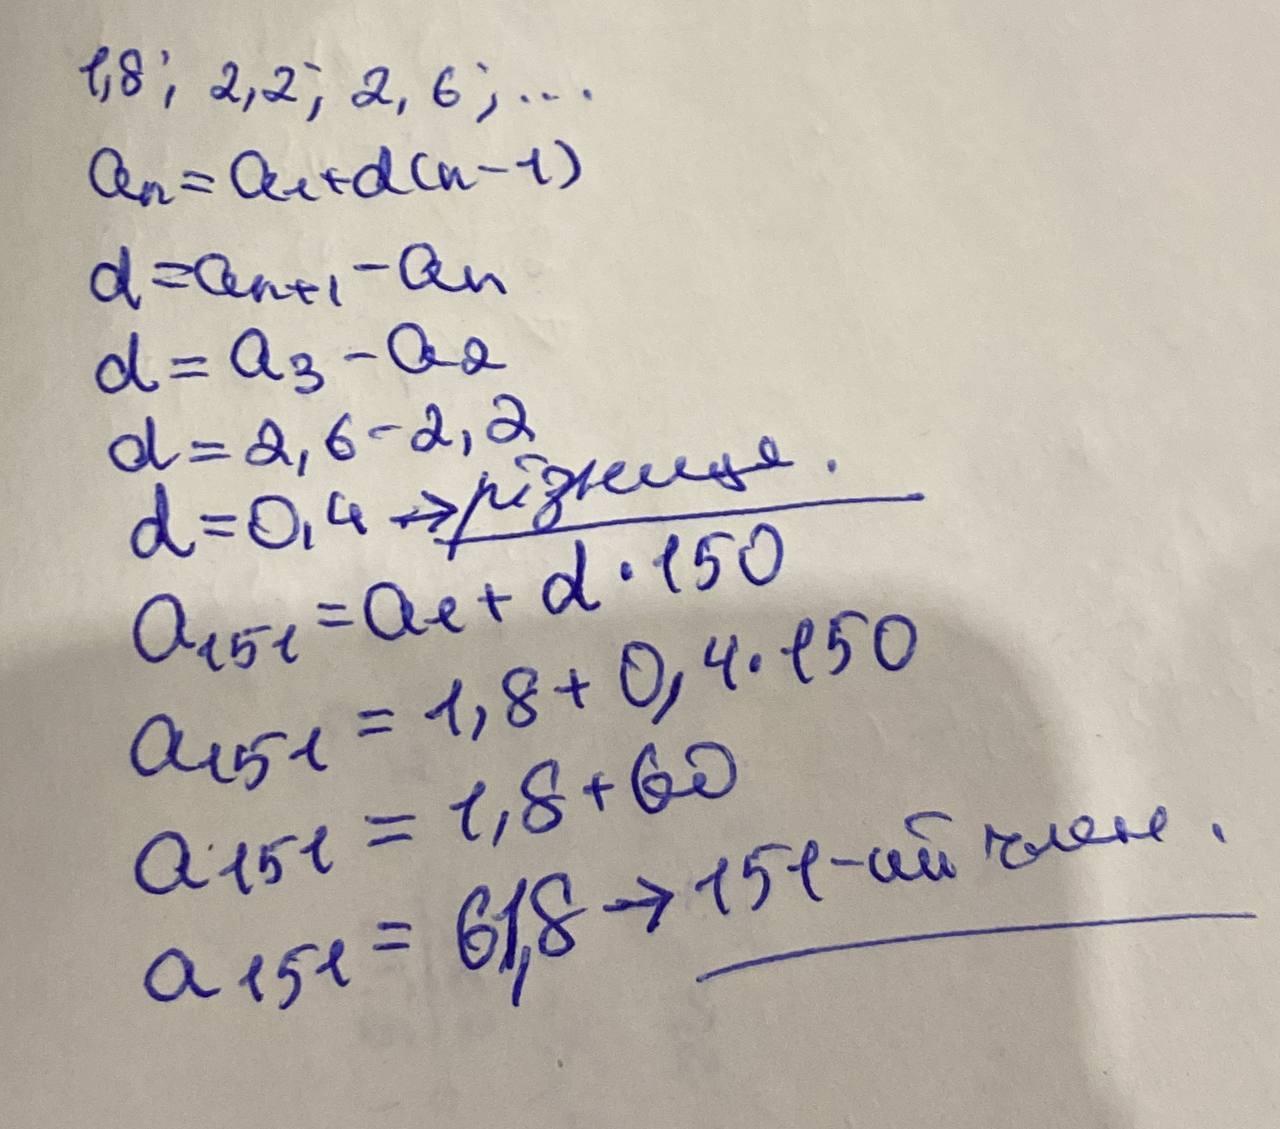 1,8; 2,2; 2,6; ...
aₙ = a₁ + d(n-1)
d = aₙ₊₁ - aₙ
d = a₃ - a₂
d = 2,6 - 2,2
d = 0,4 → різниця.
a₁₅₁ = a₁ + d · 150
a₁₅₁ = 1,8 + 0,4 · 150
a₁₅₁ = 1,8 + 60
a₁₅₁ = 61,8 → 151-ий член.